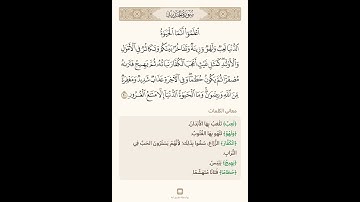 سورة الحديد
ٱعْلَمُوٓا۟ أَنَّمَا ٱلْحَيَوٰةُ
ٱلدُّنْيَا لَعِبٌ وَلَهْوٌ وَزِينَةٌ وَتَفَاخُرٌۢ بَيْنَكُمْ وَتَكَاثُرٌ فِى ٱلْأَمْوَٰلِ
وَٱلْأَوْلَـٰدِ كَمَثَلِ غَيْثٍ أَعْجَبَ ٱلْكُفَّارَ نَبَاتُهُۥ ثُمَّ يَهِيجُ فَتَرَىٰهُ
مُصْفَرًّا ثُمَّ يَكُونُ حُطَـٰمًا وَفِى ٱلْـَٔاخِرَةِ عَذَابٌ شَدِيدٌ وَمَغْفِرَةٌ
مِّنَ ٱللَّهِ وَرِضْوَٰنٌ وَمَا ٱلْحَيَوٰةُ ٱلدُّنْيَآ إِلَّا مَتَـٰعُ ٱلْغُرُورِ
معاني الكلمات
﴿لَعِبٌ﴾ تَلْعَبُ بِهَا الْأَبْدَانُ.
﴿وَلَهْوٌ﴾ تَلْهُو بِهَا الْقُلُوبُ.
﴿الْكُفَّارَ﴾ الزُّرَّاعَ، سُمُّوا بِذَلِكَ؛ لِأَنَّهُمْ يَسْتُرُونَ الْحَبَّ فِي
التُّرَابِ.
﴿يَهِيجُ﴾ يَيْبَسُ.
﴿حُطَامًا﴾ فُتَاتًا مُتَهَشِّمًا.